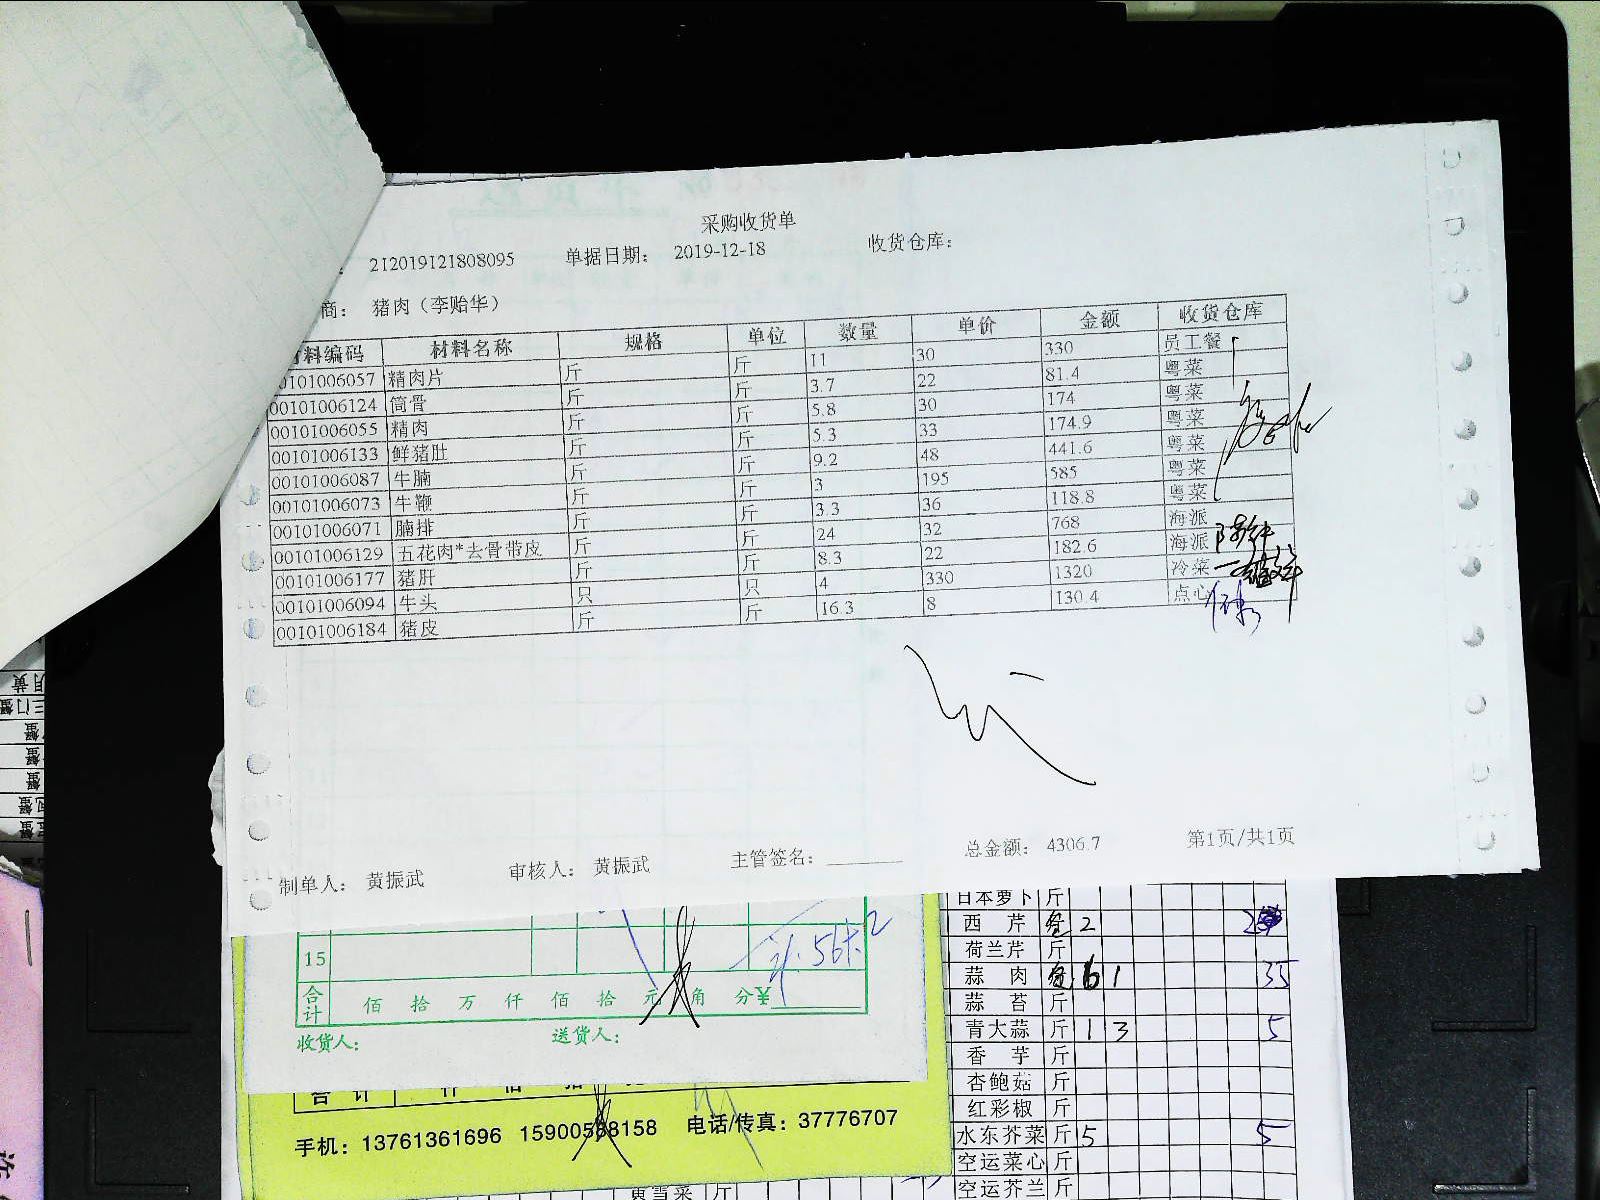 采购收货单
212019121808095 单据日期: 2019-12-18 收货仓库:
商: 猪肉（李贻华）
料编码 材料名称 规格 单位 数量 单价 金额 收货仓库
00101006057 精肉片 斤 斤 11 30 330 员工餐
00101006124 筒骨 斤 斤 3.7 22 81.4 粤菜
00101006055 精肉 斤 斤 5.8 30 174 粤菜
00101006133 鲜猪肚 斤 斤 5.3 33 174.9 粤菜
00101006087 牛腩 斤 斤 9.2 48 441.6 粤菜
00101006073 牛鞭 斤 斤 3 195 585 粤菜
00101006071 腩排 斤 斤 3.3 36 118.8 粤菜
00101006129 五花肉*去骨带皮 斤 斤 24 32 768 海派
00101006177 猪肝 斤 斤 8.3 22 182.6 海派
00101006094 牛头 只 只 4 330 1320 冷菜
00101006184 猪皮 斤 斤 16.3 8 130.4 点心
总金额: 4306.7 第1页/共1页
制单人: 黄振武 审核人: 黄振武 主管签名:
15
合计 佰 拾 万 仟 佰 拾 元 角 分
收货人: 送货人:
合 计 仟 佰 拾
手机: 13761361696 15900568158 电话/传真: 37776707
日本萝卜 斤
西 芹 2
荷兰芹 斤
蒜 肉 61 35
蒜 苔 斤
青大蒜 斤 1 3 5
香 芋 斤
杏鲍菇 斤
红彩椒 斤
水东芥菜 斤 5 5
空运菜心 斤
空运芥兰 斤
黄雪菜 斤